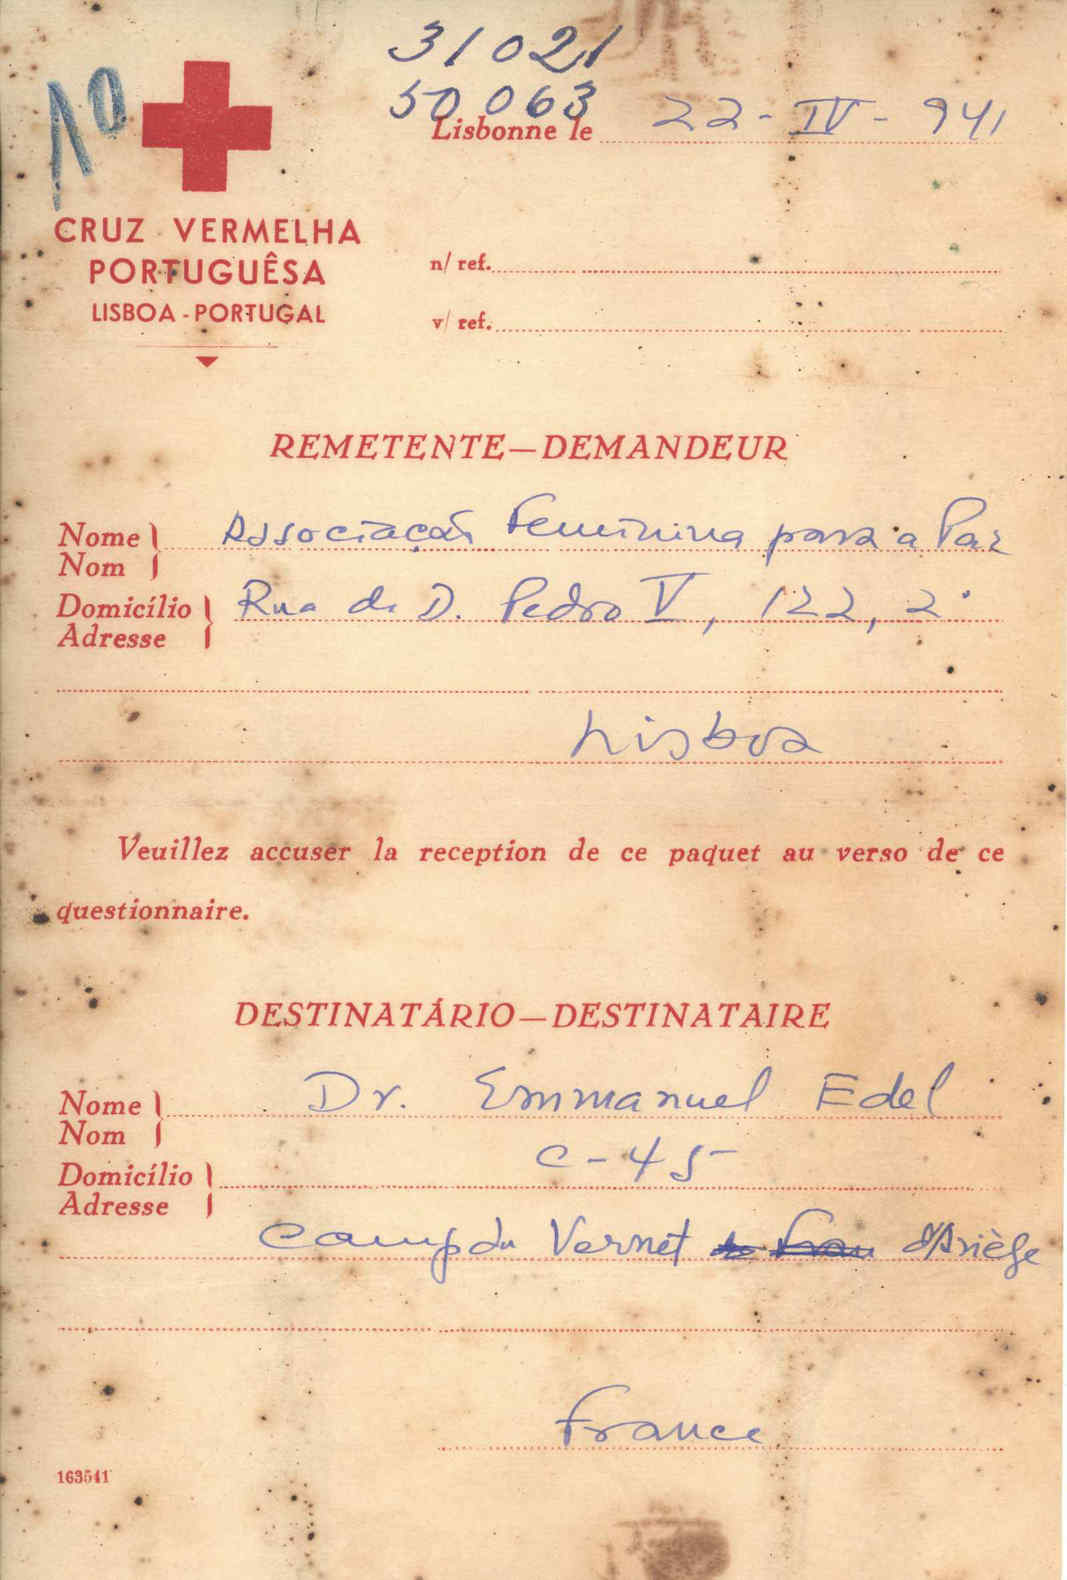 31021
50063
Nº
Lisbonne le 22-IV-941
CRUZ VERMELHA
PORTUGUÊSA
LISBOA - PORTUGAL
n/ ref.
v/ ref.
REMETENTE—DEMANDEUR
Nome
Nom
Associação Feminina para a Paz
Domicílio
Adresse
Rua de D. Pedro V, 122, 2º
Lisboa
Veuillez accuser la reception de ce paquet au verso de ce
questionnaire.
DESTINATÁRIO—DESTINATAIRE
Nome
Nom
Dr. Emmanuel Edel
Domicílio
Adresse
C-45
Camp du Vernet d'Ariège
France
163541